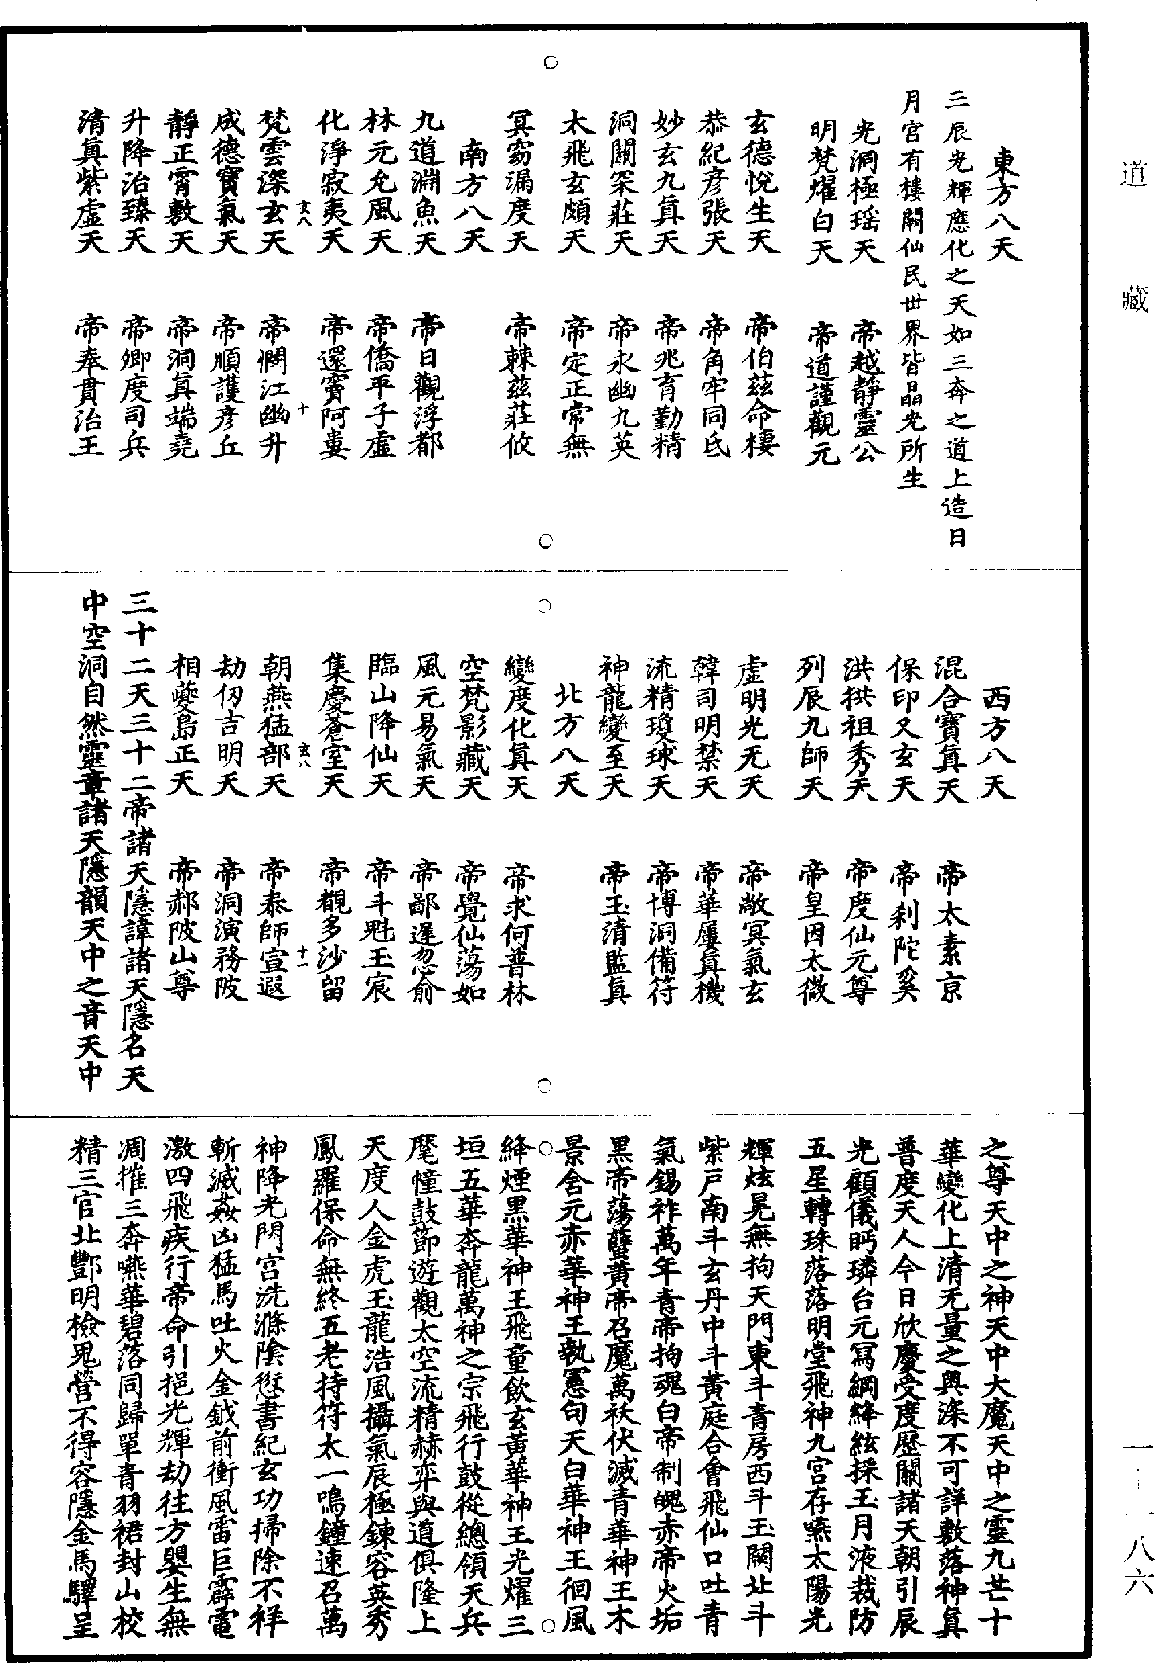 道藏
一—一八六
東方八天
三辰光輝應化之天如三奔之道上造日
月宮有樓闕仙民世界皆晶光所生
光洞極瑶天　帝越靜靈公
明梵燿白天　帝道謹觀元
玄德悅生天　帝伯兹命棲
恭紀彥張天　帝角牢同氐
妙玄九真天　帝兆育勤精
洞闕罙莊天　帝永幽九英
太飛玄頗天　帝定正常無
冥窈漏度天　帝棘兹莊攸
南方八天
九道淵魚天　帝日觀浮都
林元允風天　帝僑平子虛
化淨寂夷天　帝還賓阿婁
玄八　十
梵雲深玄天　帝憪江幽升
咸德寶氣天　帝順護彥丘
靜正霄敷天　帝洞真端堯
升降治臻天　帝卿度司兵
清真紫虛天　帝奉貫治王
西方八天
混合寶真天　帝太素京
保印又玄天　帝剎陀奚
洪拱祖秀天　帝度仙元尊
列辰九師天　帝皇因太微
虛明光元天　帝敞冥氣玄
韓司明禁天　帝華屢真機
流精瓊球天　帝博洞備符
神龍變至天　帝玉清監真
北方八天
變度化真天　帝求何普林
空梵影藏天　帝覺仙蕩如
風元易氣天　帝鄙遲忽俞
臨山降仙天　帝斗魁王宸
集慶蒼室天　帝觀多沙留
玄八　十一
朝燕猛部天　帝泰師宣遐
劫仞吉明天　帝洞演務陂
相夔島正天　帝郝陂山尊
三十二天三十二帝諸天隱諱諸天隱名天
中空洞自然靈章諸天隱韻天中之音天中
之尊天中之神天中大魔天中之靈九芒十
華變化上清无量之奧深不可詳敷落神真
普度天人今日欣慶受度歷關諸天朝引辰
光顧儀眄璘台元冩綱絳絃採玉月液裁防
五星轉珠落落明堂飛神九宮存嚥太陽光
輝炫晃無拘天門東斗青房西斗玉闕北斗
紫戶南斗玄丹中斗黃庭合會飛仙口吐青
氣錫祚萬年青帝拘魂白帝制魄赤帝火垢
黑帝蕩孽黃帝召魔萬祅伏滅青華神王木
景含元赤華神王執憲句天白華神王徊風
絳煙黑華神王飛童飲玄黃華神王光燿三
垣五華奔龍萬神之宗飛行鼓從總領天兵
麾幢鼓節遊觀太空流精赫弈與道俱隆上
天度人金虎玉龍浩風攝氣辰極鍊容英秀
鳳羅保命無終五老持符太一鳴鐘速召萬
神降光閉宮洗滌陰愆書紀玄功掃除不祥
斬滅姦凶猛馬吐火金鉞前衝風雷巨霹電
激四飛疾行帝命引挹光輝劫往方嬰生無
凋摧三奔嚥華碧落同歸單青羽裙封山校
精三官北酆明檢鬼營不得容隱金馬驛呈